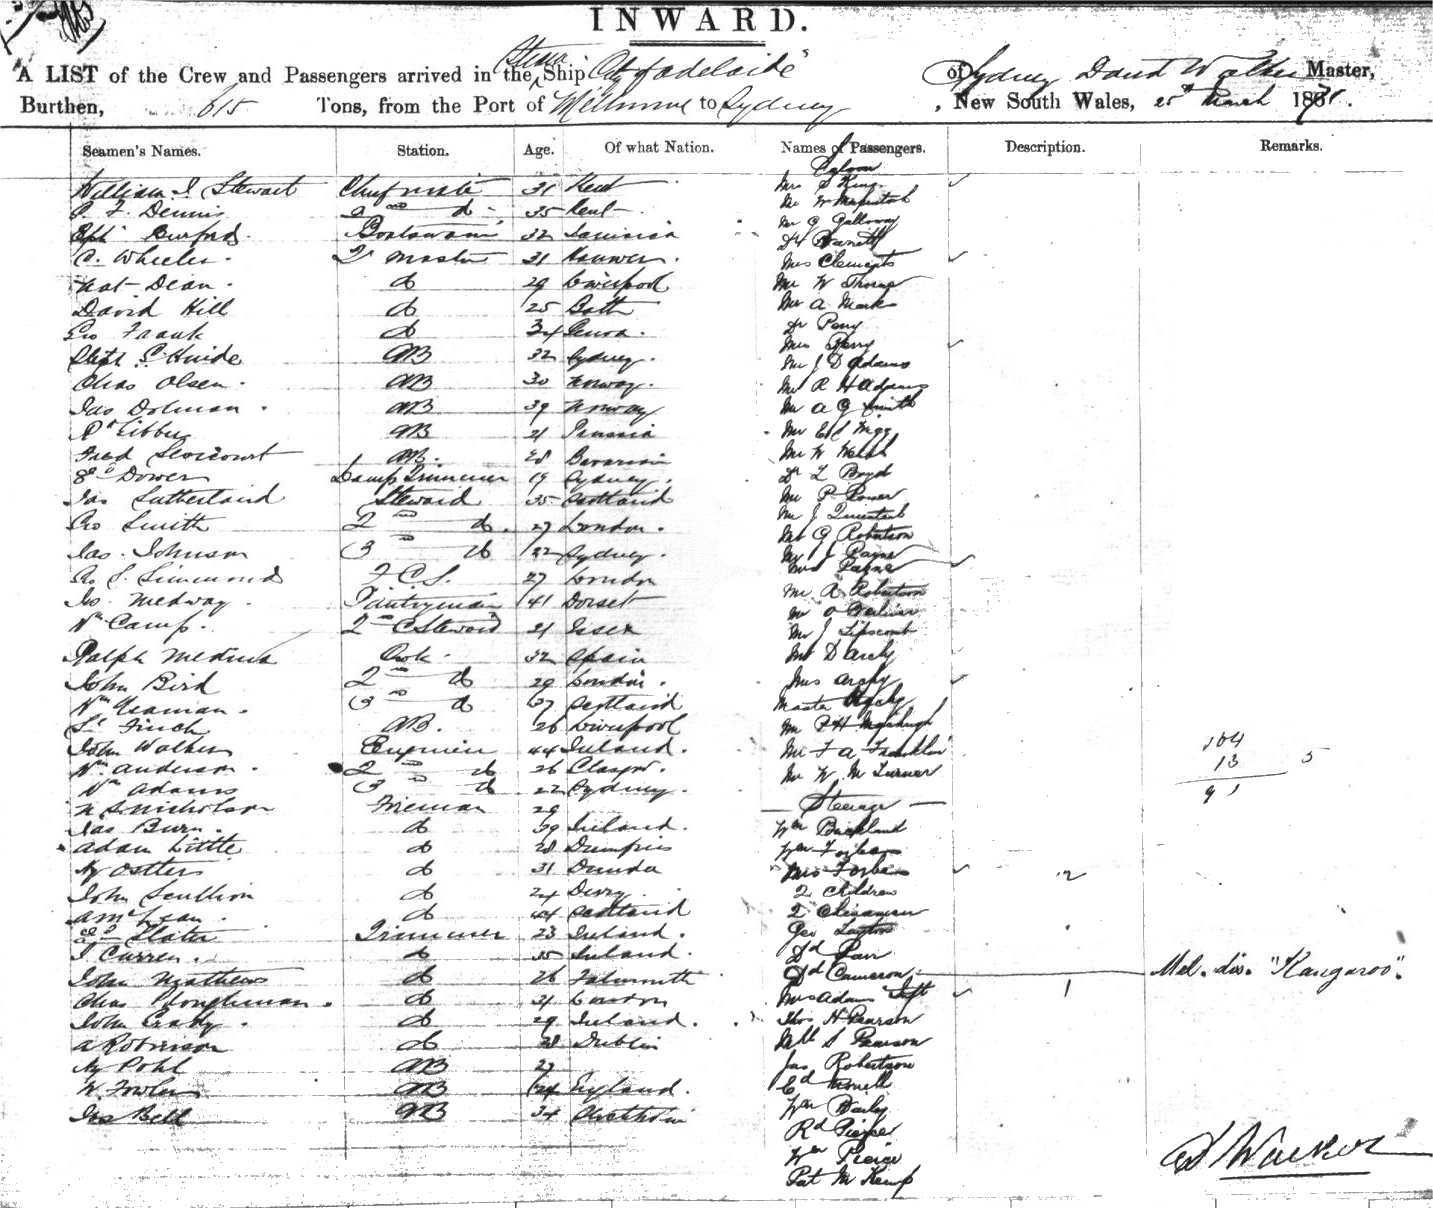 INWARD.
A LIST of the Crew and Passengers arrived in the Steam Ship City of Adelaide of Sydney David Walker Master,
Burthen, 615 Tons, from the Port of Melbourne to Sydney, New South Wales, 25th March 1871.
Seamen's Names. Station. Age. Of what Nation. Names of Passengers. Description. Remarks.
Saloon
William J Stewart Chief mate 31 Kent Mrs S King
P. F. Dennis 2nd do 35 Kent Mr W
Burford Boatswain 32 Mr G Galloway
C. Wheeler Qr Master 21 Hanover Mrs Clements
Nat Dean do 29 Liverpool Mr W Thorne
David Hill do 25 Bath Mr A Marks
Geo Frank do 34 Genoa Dr Perry
AB 32 Sydney Mrs Perry
Chas Olsen AB 30 Norway Mr J D Adams
Jas Dolman AB 39 Norway Mr R H Adams
AB 21 Prussia Mr A G Smith
Fred AB 28 Bavaria Mr W Welsh
Dower Lamp Trimmer 19 Sydney Dr L Boyd
Jas Sutherland Steward 35 Scotland Mr P Power
Geo Smith 2nd do 27 London Mr J
Jas Johnson 3 do 32 Sydney Mr G Robertson
Geo S. Simmonds F.C.S. 27 London Mr J Payne
Mrs Payne
Medway Pantryman 41 Dorset Mr R Robertson
Wm Camp 2nd C Steward 21 Essex Mr J Lipscomb
Ralph Medina Cook 32 Spain Mr D Archy
John Bird 2nd do 29 London Mrs Archy
Wm 3rd do 27 Scotland Master Archy
Finch AB 26 Liverpool Mr P H
John Walker Engineer 44 Ireland Mr F A Franklin 104
Wm Anderson 2nd do 26 Glasgow Mr W M Turner 13 5
Wm Adams 3rd do 22 Sydney 91
N S Nicholson Fireman 29 Steerage
Jas Burn do 39 Ireland Wm Buckland
Adam Little do 28 Dumfries Wm Forbes
Hy Ostler do 31 Dundee Mrs Forbes 2
John Scullion do 24 Derry 2 Children
A McLean do 44 Scotland 2 Chinaman
Slater Trimmer 23 Ireland Geo Layton
J Curren do 35 Ireland Dd Parr
John Matthews do 26 Falmouth Dd Cameron Mel. dis. "Kangaroo"
Chas Ploughman do 21 Mrs Adams 1
John Grady do 29 Ireland Thos H Pearson
A Robinson do 28 Dublin S Pearson
Hy Pohl AB 27 Jas Robertson
W Fowler AB 24 England Ed
Jas Bell AB 34 Wm Baily
Rd Pierce
Wm Pierce
Pat M Kemp
D Walker